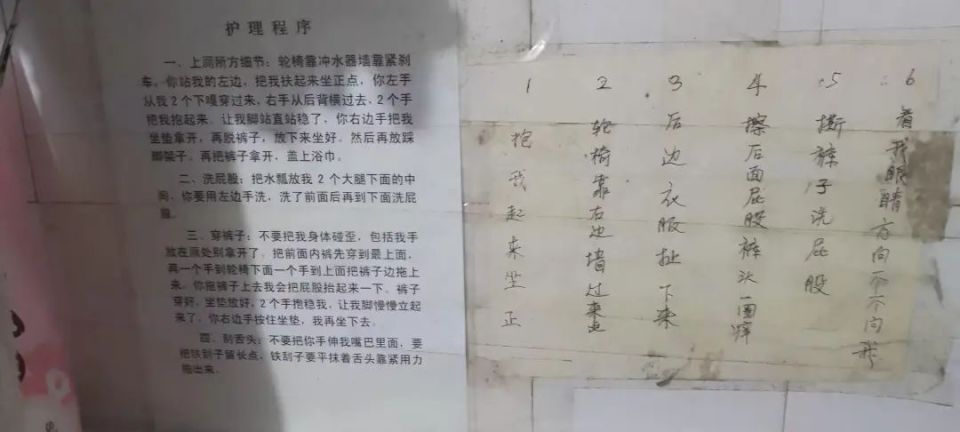 护理程序
一、上厕所方细节：轮椅靠冲水器墙靠紧刹
车，你站我的左边，把我扶起来坐正点，你左手
从我2个下嘎穿过来，右手从后背横过去，2个手
把我抱起来。让我脚站直站稳了，你右边手把我
坐垫拿开，再脱裤子，放下来坐好。然后再放踩
脚架子。再把裤子拿开，盖上浴巾。
二、洗屁股：把水瓢放我2个大腿下面的中
间，你要用左边手洗，洗了前面后再到下面洗屁
股。
三、穿裤子：不要把我身体碰歪，包括我手
放在原处别拿开了。把前面内裤先穿到最上面，
再一个手到轮椅下面一个手到上面把裤子边拖上
来。你拖裤子上去我会把屁股抬起来一下。裤子
穿好，坐垫放好，2个手抱稳我，让我脚慢慢立起
来了，你右边手按住坐垫，我再坐下去。
四、刮舌头：不要把你手伸我嘴巴里面，要
把铁刮子留长点，铁刮子要平抹着舌头靠紧用力
拖出来。
1 抱我起来坐正
2 轮椅靠右边墙过来
3 后边衣服扯下来
4 擦后面屁股裤头
5 裤子洗屁股
6 看我眼睛方向